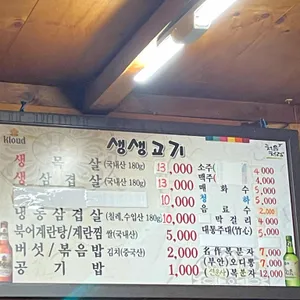 Kloud
생생고기
처음처럼
생 목 살 (국내산 180g) 13,000
생 삼 겹 살 (국내산 180g) 13,000
10,000
냉동삼겹살 (칠레,수입산 180g) 10,000
북어계란탕/계란찜 쌀(국내산) 5,000
버섯/볶음밥 김치(중국산) 2,000
공 기 밥 1,000
소주 4,000
맥주 4,000
매 화 수 5,000
청 하 5,000
음 료 수 2,000
막 걸 리
대통주대(竹心) 12,000
名作복분자 7,000
(부안)오디뽕 7,000
복분자 12,000